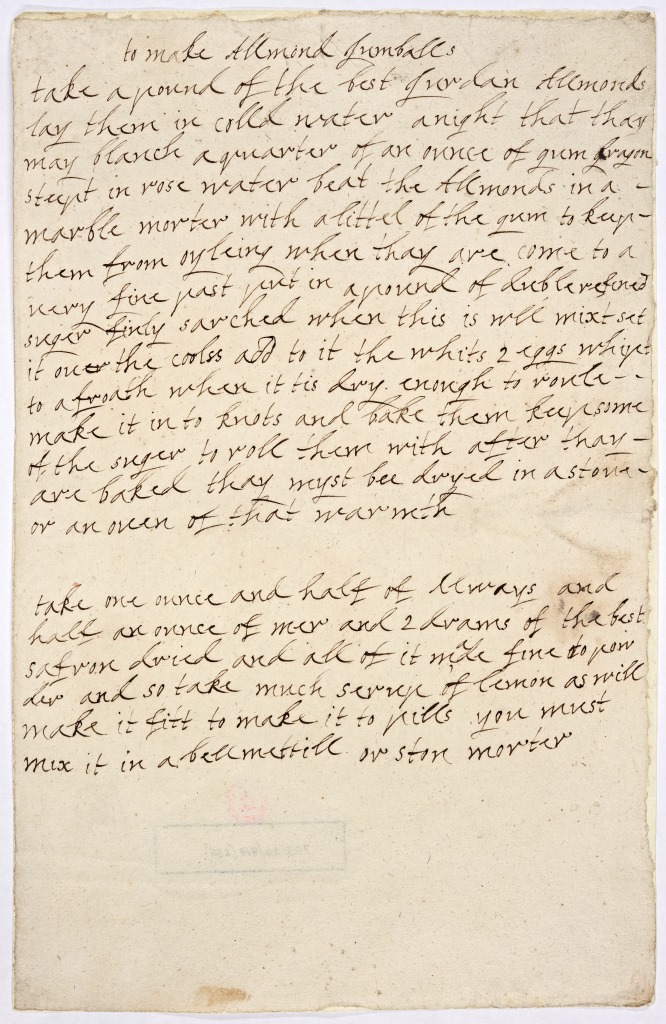 to make Allmond Jumballs
take a pound of the best Jurdan Allmonds
lay them in colld water a night that thay
may blanch a quarter of an ounce of gum dragon
steept in rose water beat the Allmonds in a -
marble morter with a littel of the gum to keep-
them from oyleing when thay are come to a
very fine past put in a pound of duble refined
suger finly sarched when this is will mixt set
it over the cooles add to it the whits 2 eggs whipt
to a froath when it tis dry enough to roule--
make it in to knots and bake them keep some
of the suger to roll them with after thay-
are baked thay myst bee dryed in a stove-
or an oven of that warmth
take one ounce and half of and
half an ounce of mer and 2 drams of the best
safron dried and all of it made fine to pow
der and so take much serup of lemon as will
make it fitt to make it to pills you must
mix it in a bellmettill or ston morter